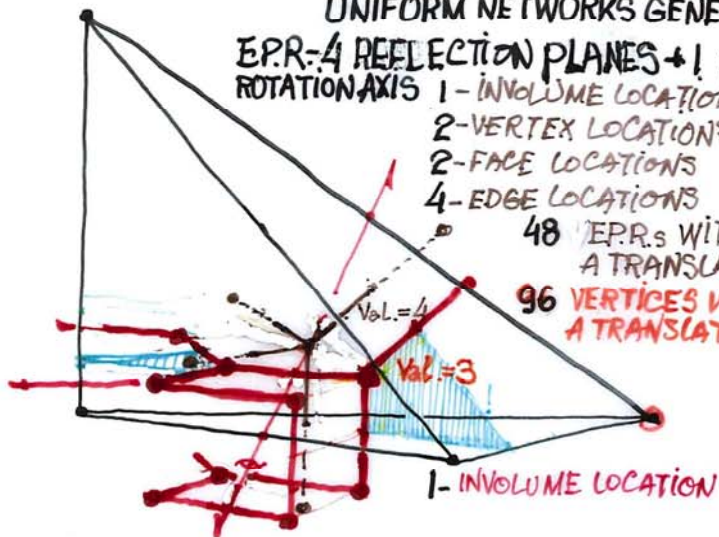 UNIFORM NETWORKS GENE
E.P.R-4 REFLECTION PLANES + 1
ROTATION AXIS
1 - INVOLUME LOCATION
2 - VERTEX LOCATIONS
2 - FACE LOCATIONS
4 - EDGE LOCATIONS
48 E.P.R.s WIT
A TRANSLA
96 VERTICES W
A TRANSLAT
Val.=4
Val.=3
1- INVOLUME LOCATION